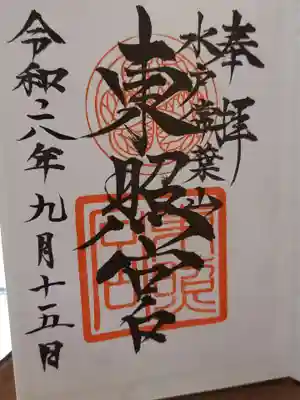 奉拝
水戸常葉山
東照宮
令和六年九月十五日